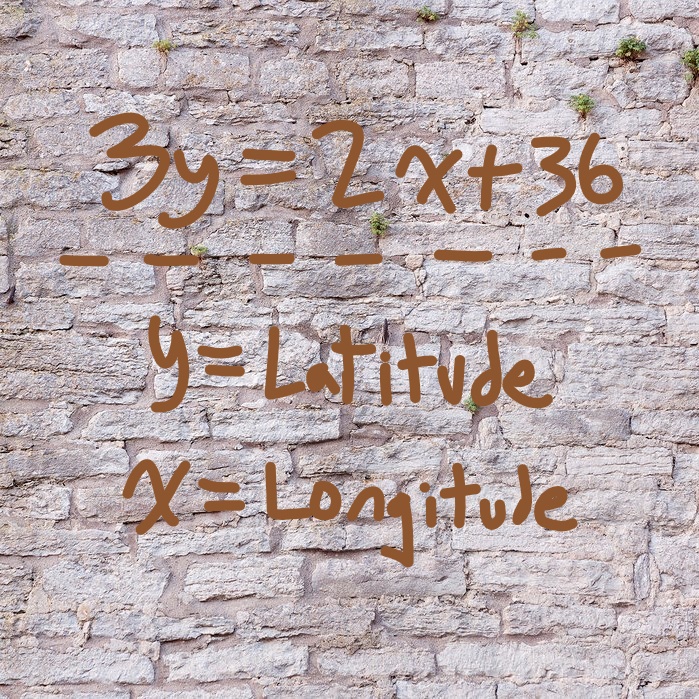 3y = 2x+36
y= Latitude
x= Longitude